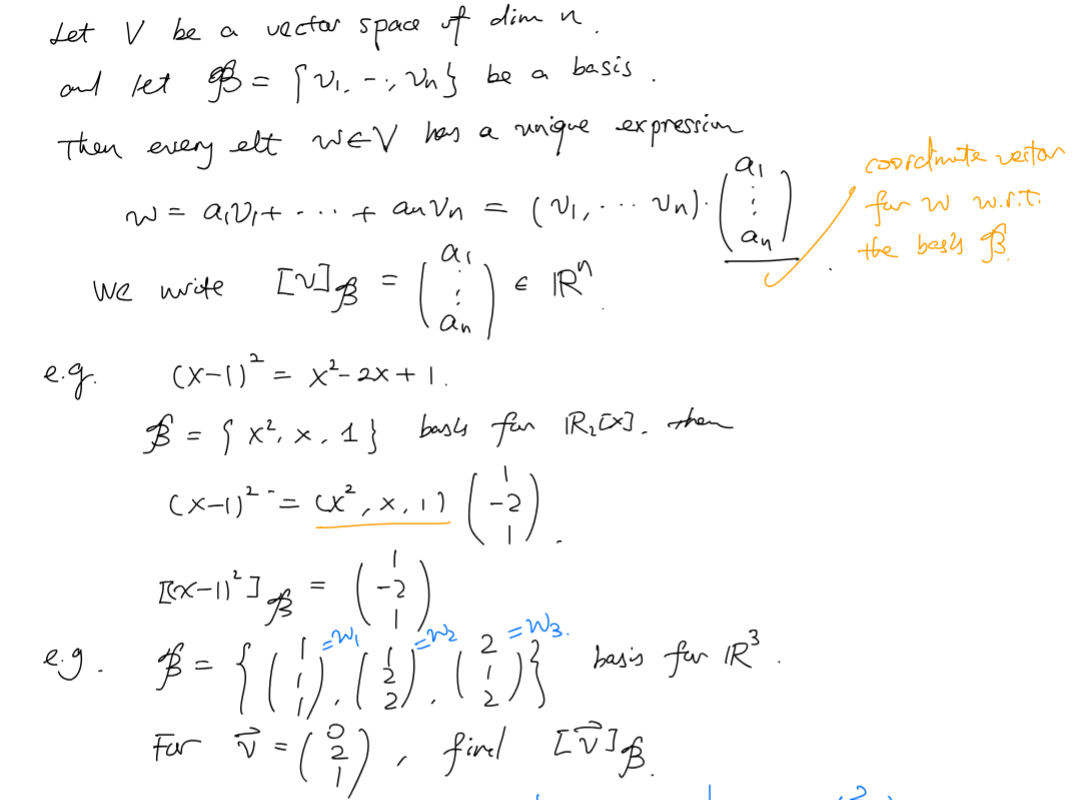 Let V be a vector space of dim n.
and let ℬ = {v₁, ⋯, vₙ} be a basis.
Then every elt w∈V has a unique expression
w = a₁v₁ + ⋯ + aₙvₙ = (v₁, ⋯ vₙ)·(a₁ ⋮ aₙ).
coordinate vector
for w w.r.t.
the basis ℬ.
We write [v]ℬ = (a₁ ⋮ aₙ) ∈ ℝⁿ.
e.g. (x-1)² = x²-2x+1.
ℬ = {x², x, 1} basis for ℝ₂[x]. then
(x-1)² = (x², x, 1) (1 -2 1).
[(x-1)²]ℬ = (1 -2 1)
e.g. ℬ = {(1 1 1)=w₁, (1 2 2)=w₂, (2 1 2)=w₃.} basis for ℝ³.
For v⃗ = (0 2 1), find [v⃗]ℬ.